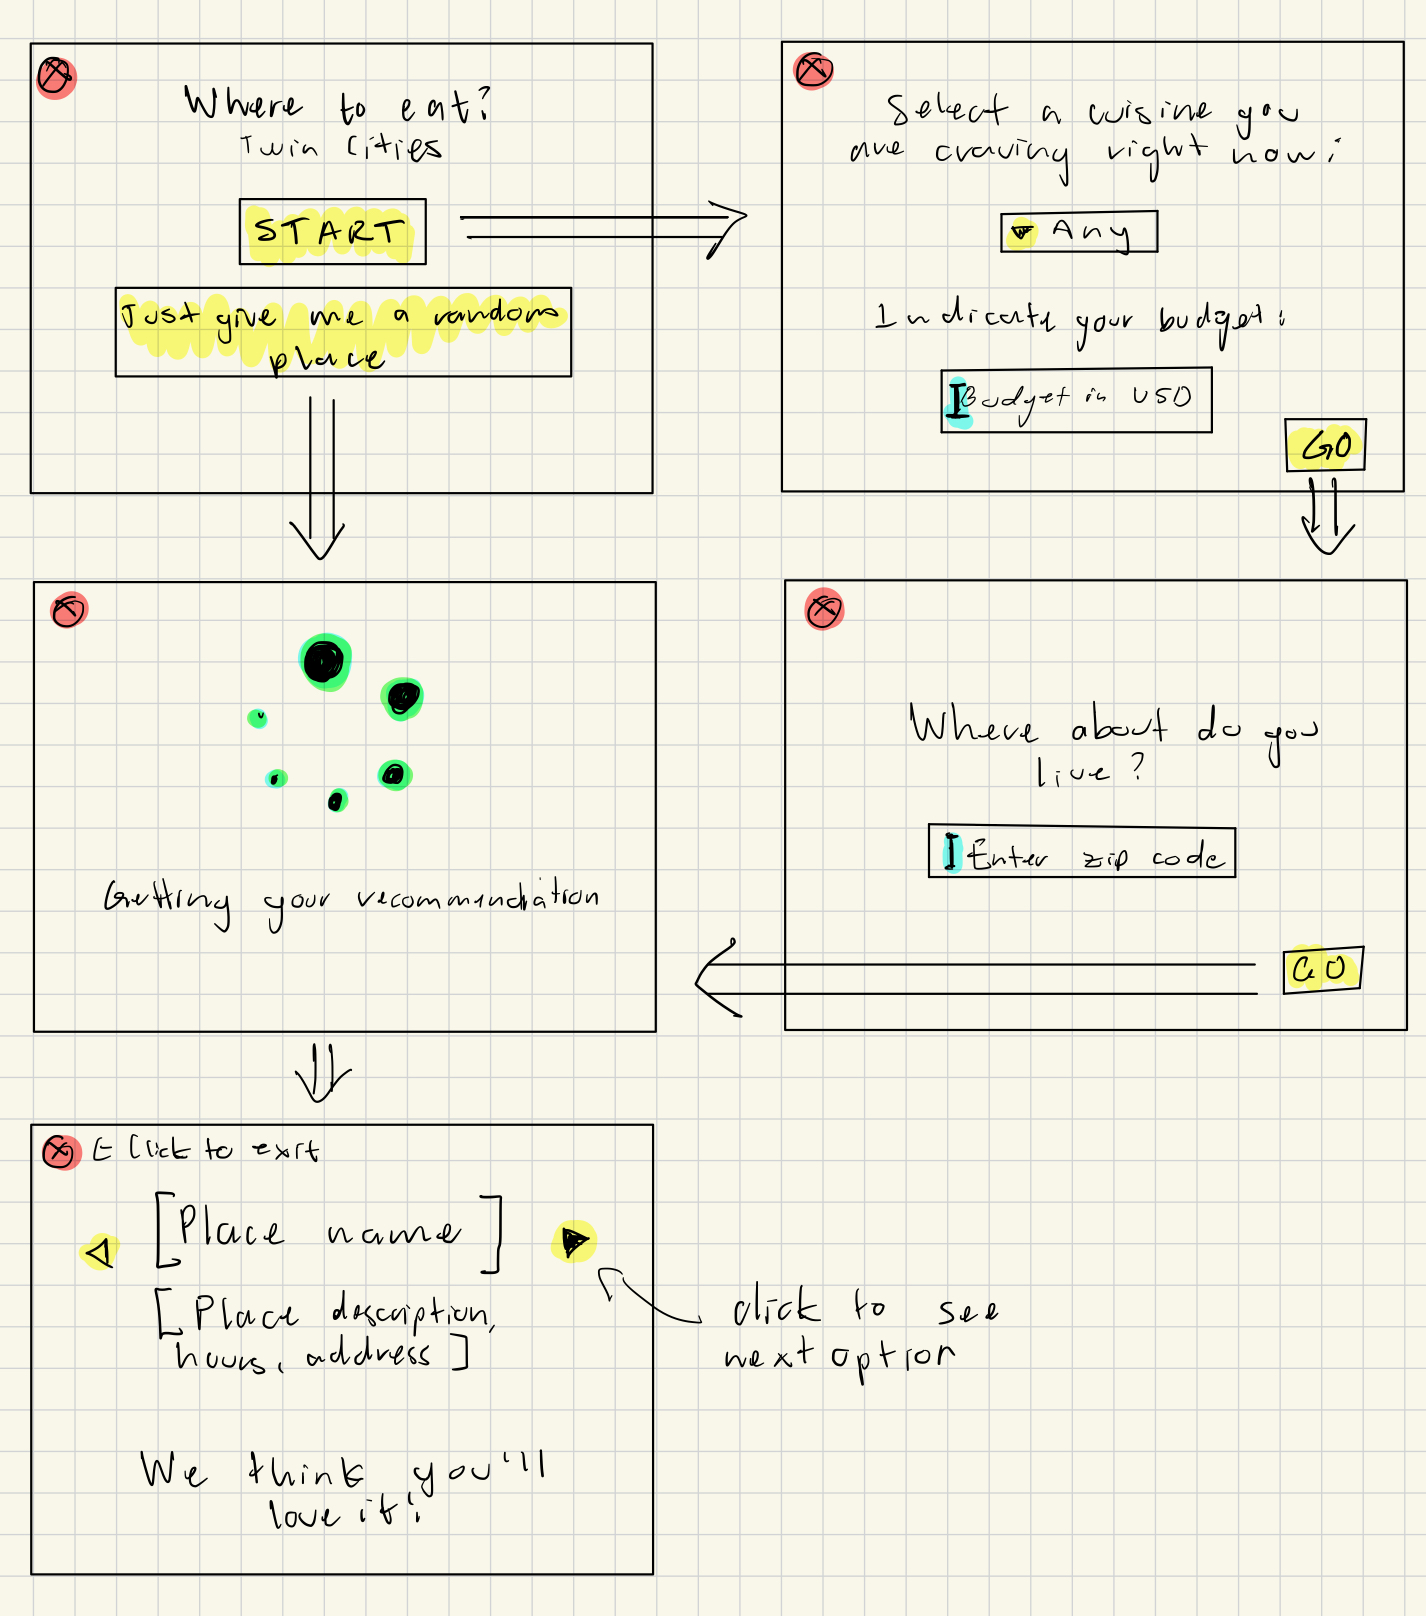 Where to eat?
Twin Cities
START
Just give me a random
place
Select a cuisine you
are craving right now:
Any
Indicate your budget:
Budget in USD
GO
Getting your recommendation
Where about do you
live?
Enter zip code
GO
Click to exit
[Place name]
[Place description,
hours, address]
We think you'll
love it!
click to see
next option